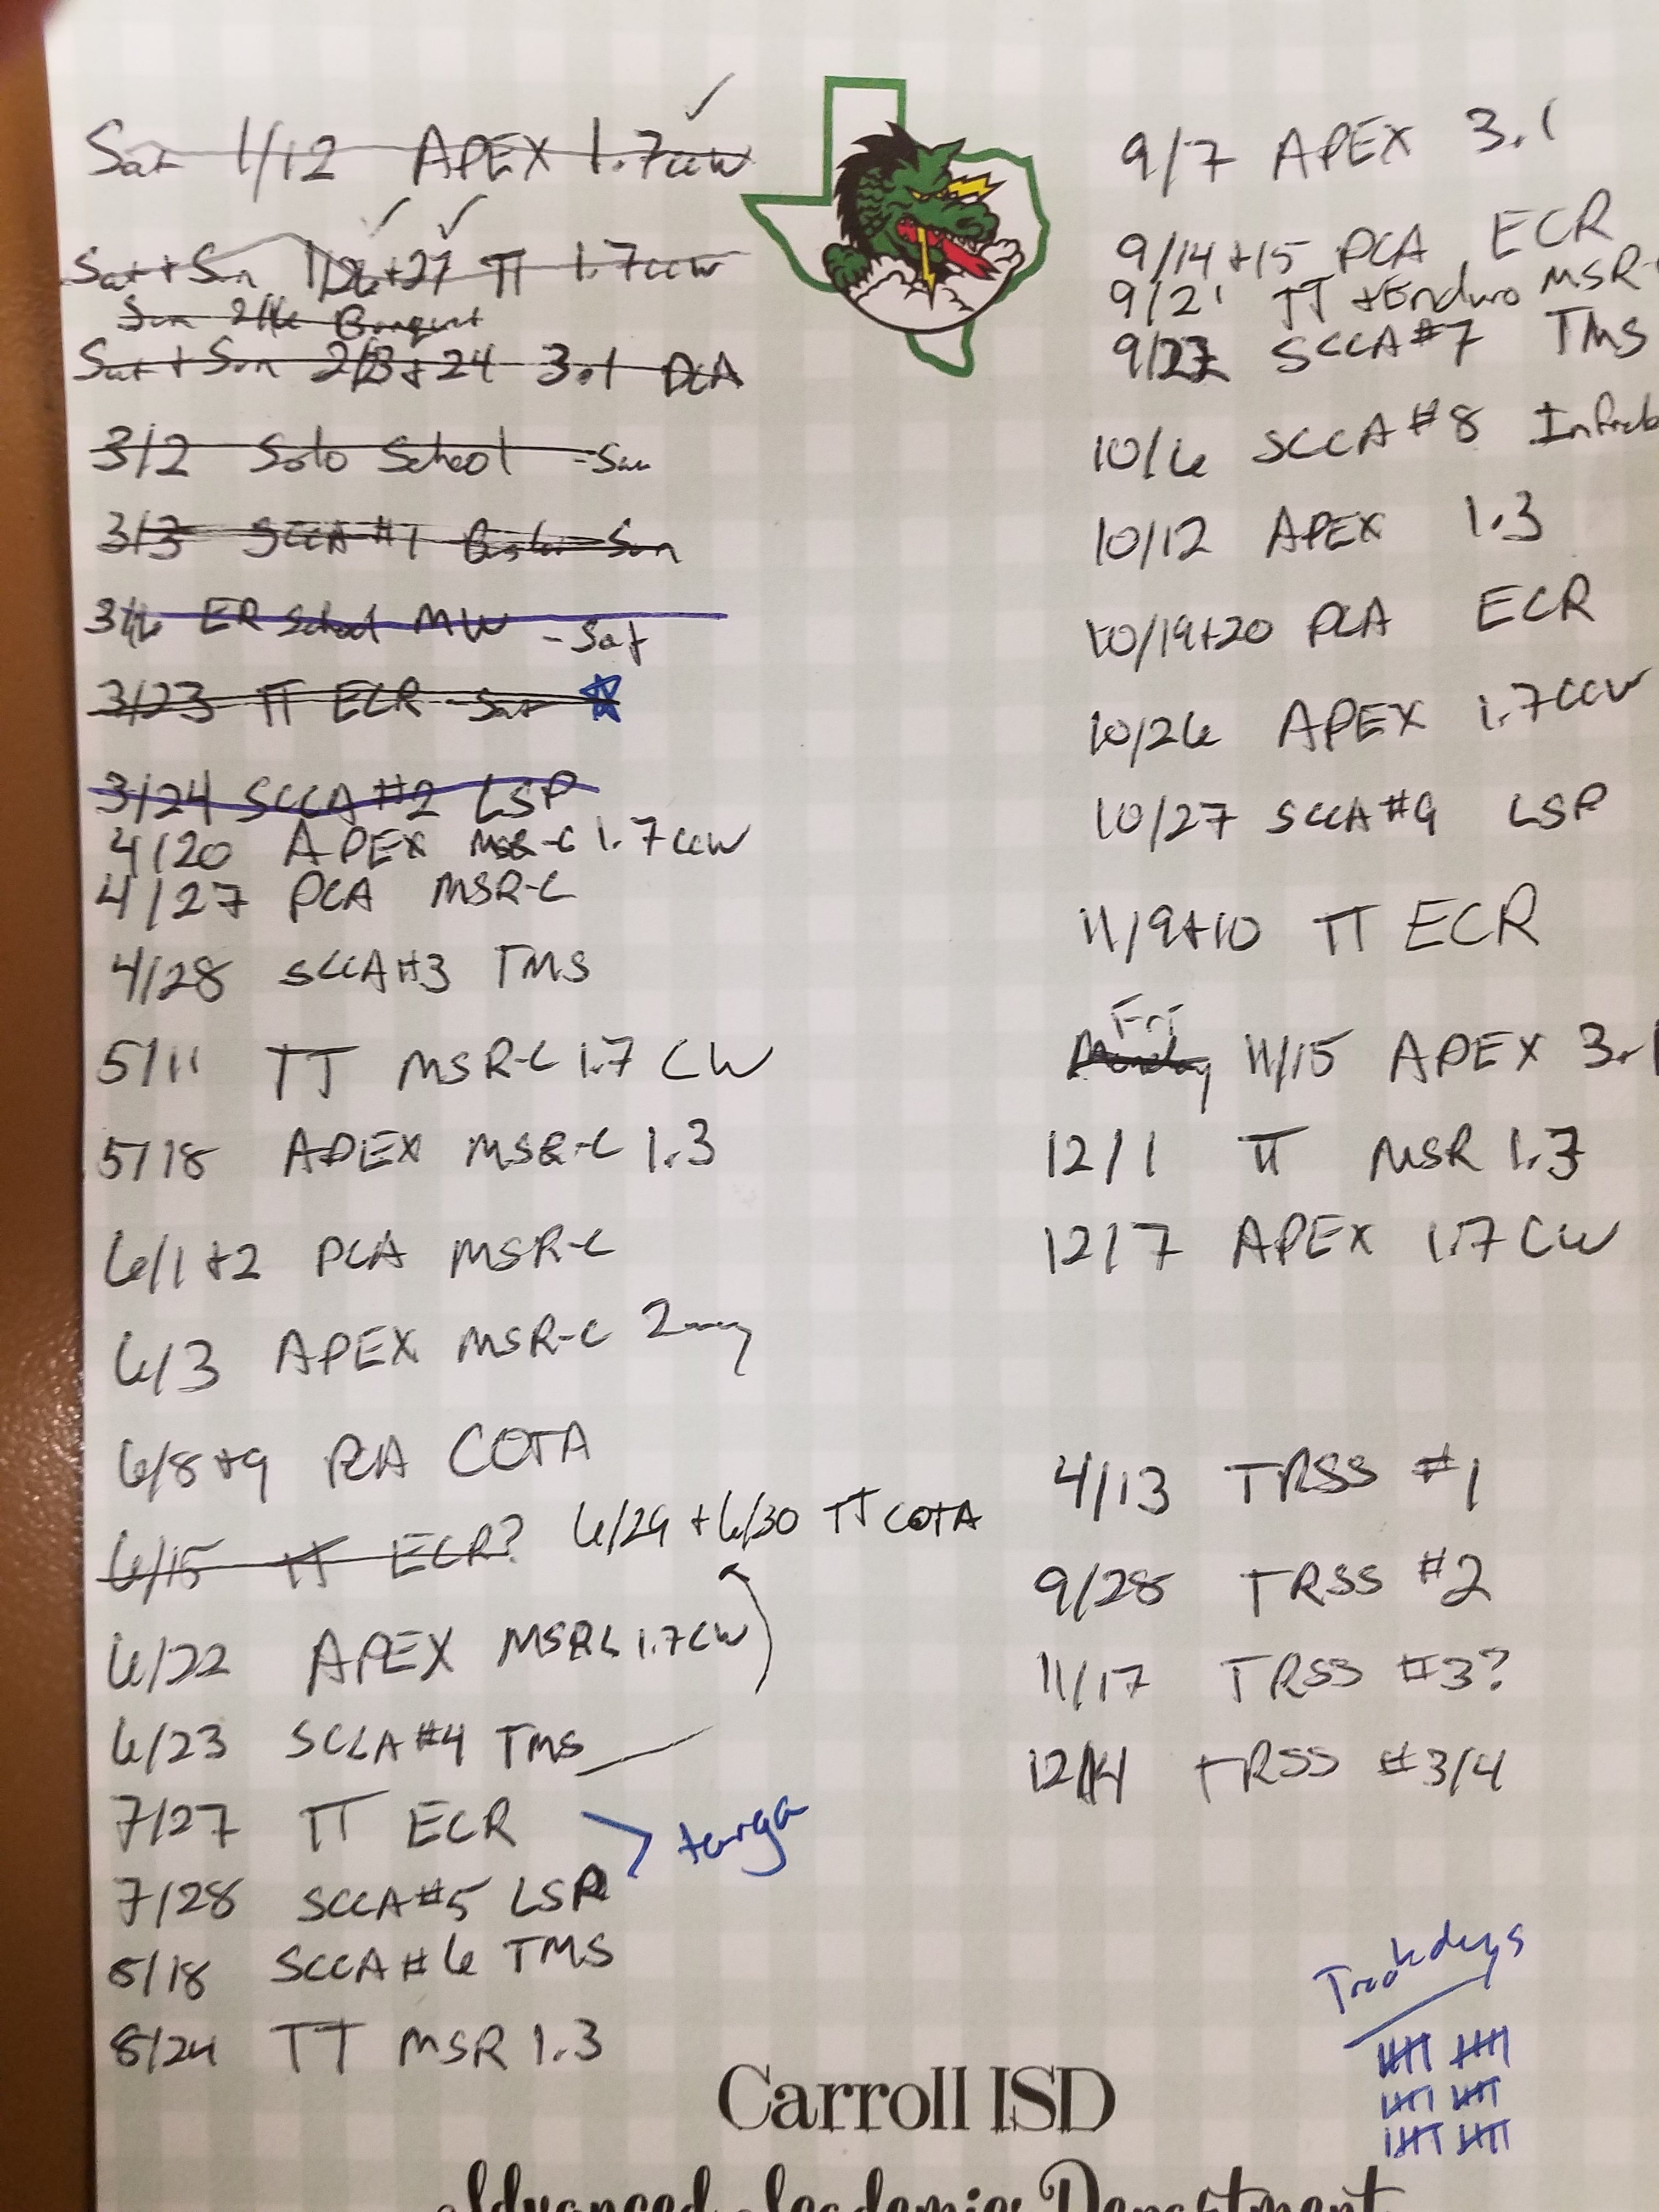 Sat 1/12 APEX 1.7ccw
Sat + Sun 1/26+27 TT 1.7ccw
Sun 2/16 Banquet
Sat + Sun 2/23+24 3.1 PCA
3/2 Solo School - Sat
3/3 SCCA #1 - Sun
3/16 ER School MW - Sat
3/23 TT ECR - Sat
3/24 SCCA #2 LSP
4/20 APEX MSR-C 1.7 ccw
4/27 PCA MSR-C
4/28 SCCA #3 TMS
5/11 TT MSR-C 1.7 CW
5/18 APEX MSR-C 1.3
6/1+2 PCA MSR-C
6/3 APEX MSR-C 2way
6/8+9 PCA COTA
6/15 TT ECR? 6/29 + 6/30 TT COTA
6/22 APEX MSRC 1.7CW
6/23 SCCA #4 TMS
7/27 TT ECR
targa
7/28 SCCA #5 LSP
8/18 SCCA #6 TMS
8/24 TT MSR 1.3
9/7 APEX 3.1
9/14+15 PCA ECR
9/21 TT + Enduro MSR-
9/22 SCCA #7 TMS
10/6 SCCA #8
10/12 APEX 1.3
10/19+20 PCA ECR
10/26 APEX 1.7CCW
10/27 SCCA #9 LSP
11/9+10 TT ECR
Fri
Monday 11/15 APEX 3.1
12/1 TT MSR 1.3
12/7 APEX 1.7 CW
4/13 TRSS #1
9/28 TRSS #2
11/17 TRSS #3?
12/14 TRSS #3/4
Trackdays
Carroll ISD
Advanced Academics Department